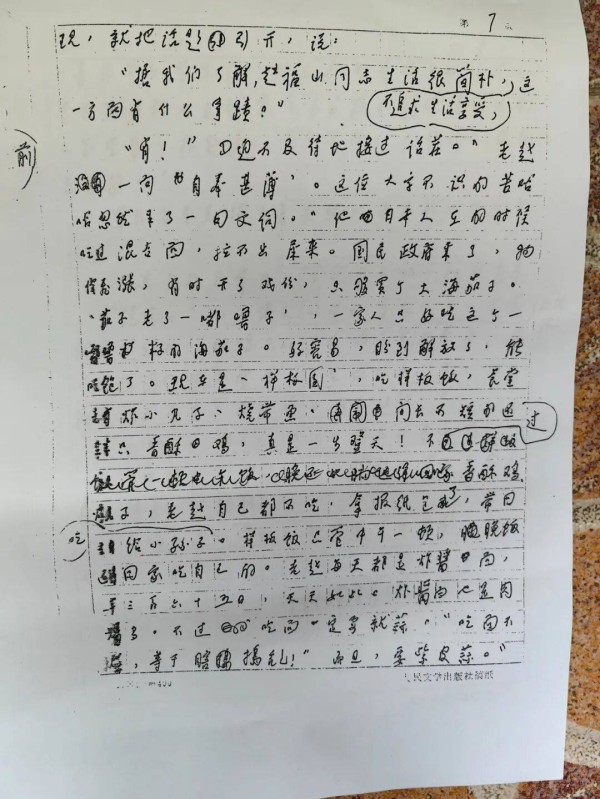 第 7 页
现，就把话题引开，说：
“据我们了解，赵福山同志生活很简朴，这
不追求生活享受，
一方面有什么事蹟？”
前
“有！”迫不及待地接过话茬。“老赵
一向‘自奉甚薄’。这位大字不识的
忽然来了一句文词。“他日本人在的时候
吃过混合面，拉不出屎来。国民政府来了，物
价飞涨，有时开了戏份，只够买个大海茄子。
‘茄子老了一嘟噜子’，一家人只好吃这个一
籽的海茄子。好容易，盼到解放了，能
吃饱了。现在是‘样板团’，吃样板饭，食堂
炸小丸子、烧带鱼，间长不短的还
过
只香酥鸡，真是一步登天！不
香酥鸡
子，老赵自己都不吃，拿报纸包了，带回
吃
给小孙子。样板饭只管中午一顿，晚饭
回家吃自己的。老赵每天都是炸酱面，
三百六十五日，天天如此。炸酱面也是肉
了。不过吃面一定要就蒜。“吃面不
，等于瞎捣乱！”而且，要紫皮蒜。”
人民文学出版社稿纸